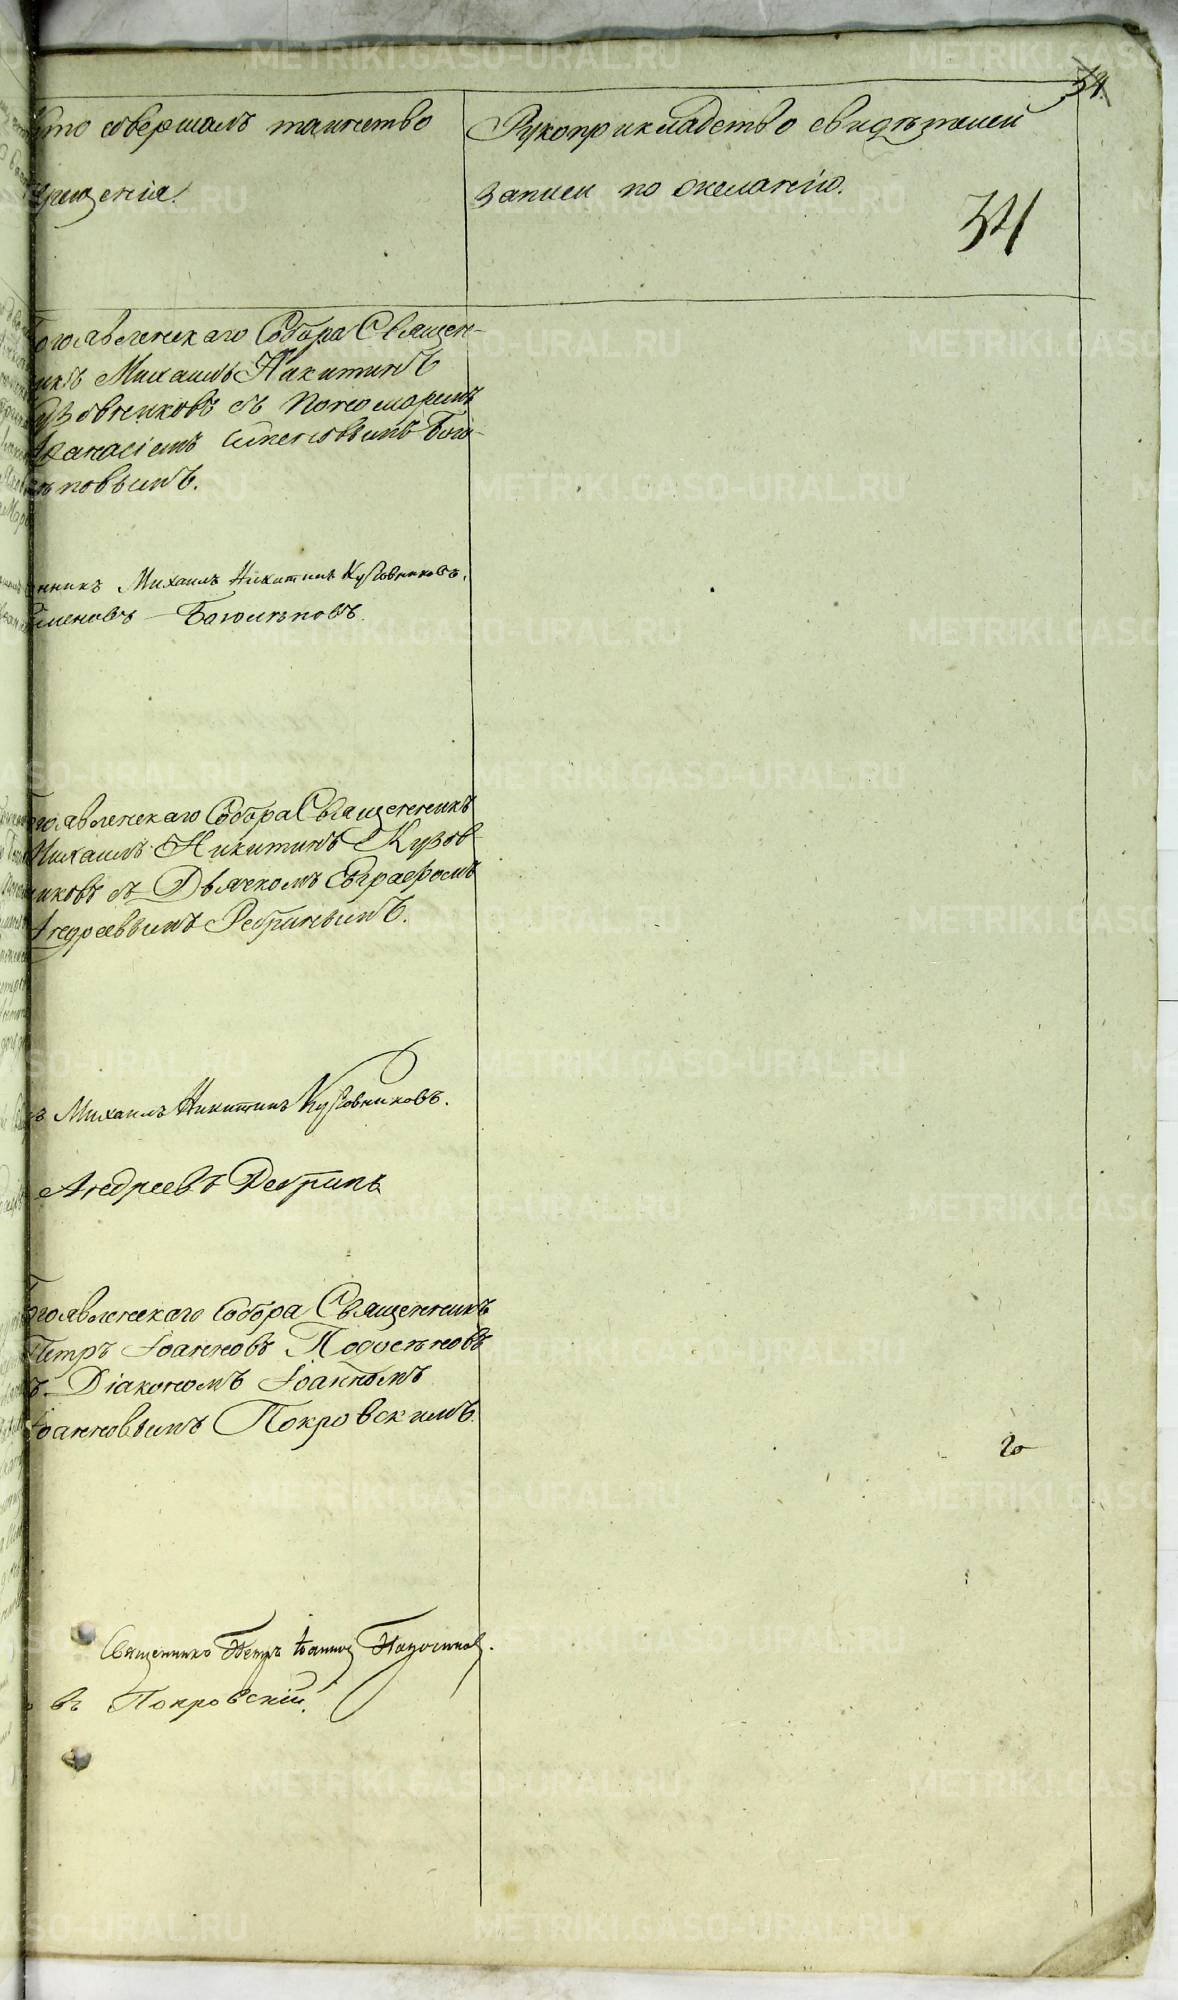 34.
Кто совершалъ таинство
крещенія.
Рукоприкладство свидѣтелей
записи по желанію.
34
Богоявленскаго Собора Священ-
никъ Михаилъ Никитинъ
Кузовниковъ съ Пономаремъ
Афанасіемъ Симеоновымъ Бого-
лѣповымъ.
енникъ Михаилъ Никитинъ Кузовниковъ.
меновъ Боголѣповъ.
Богоявленскаго Собора Священникъ
Михаилъ Никитинъ Кузов-
никовъ съ Дьячкомъ Евграфомъ
Андреевымъ Ребринымъ.
ъ Михаилъ Никитинъ Кузовниковъ.
Андреевъ Ребринъ
Богоявленскаго Собора Священникъ
Петръ Іоанновъ Подосеновъ
съ Діакономъ Іоанномъ
Іоанновымъ Покровскимъ.
Священникъ Петръ Іоанновъ
въ Покровскій.
METRIKI.GASO-URAL.RU